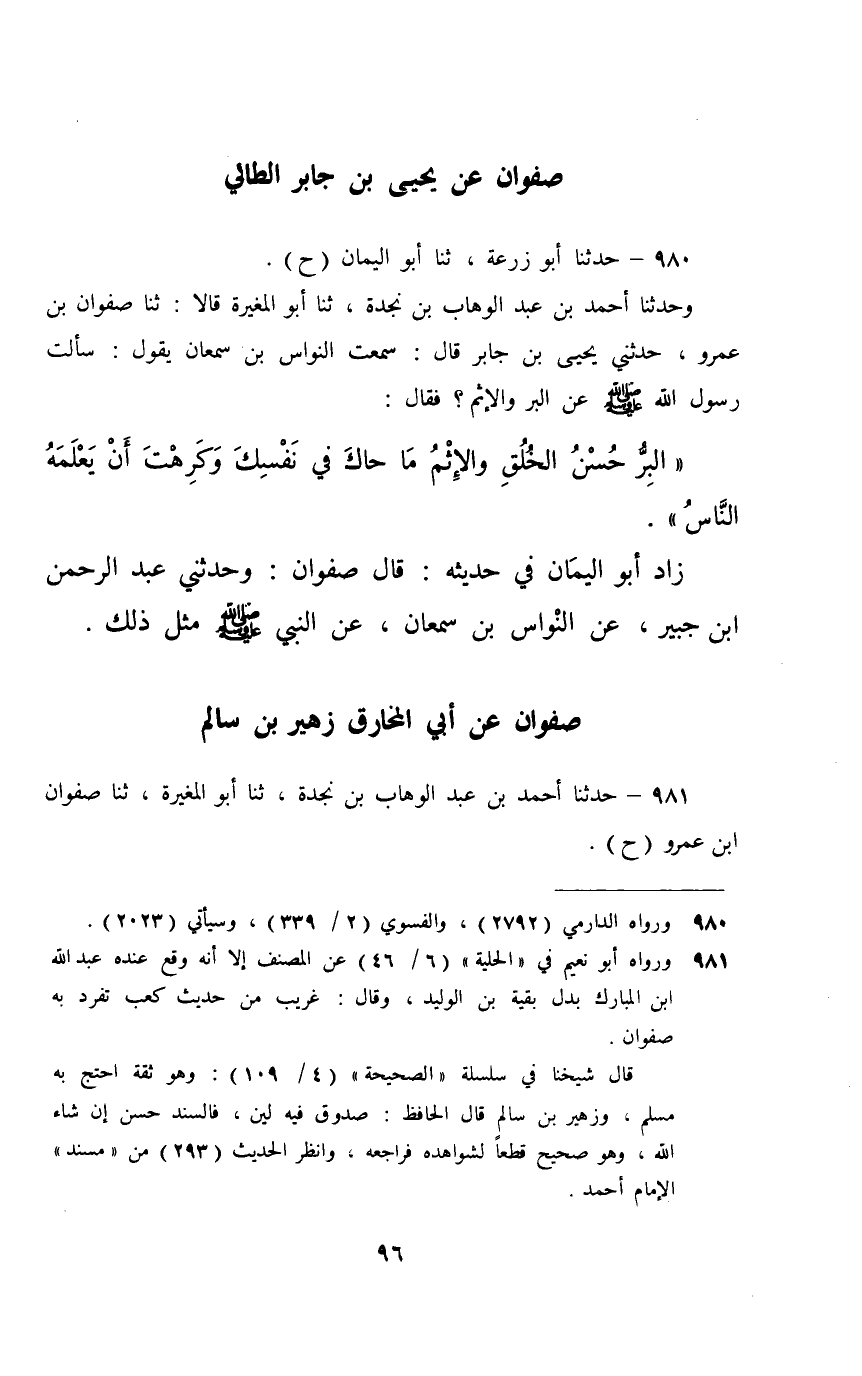 صفوان عن يحيى بن جابر الطائي
٩٨٠ – حدثنا أبو زرعة ، ثنا أبو اليمان (ح) .
وحدثنا أحمد بن عبد الوهاب بن نجدة ، ثنا أبو المغيرة قالا : ثنا صفوان بن
عمرو ، حدثني يحيى بن جابر قال : سمعت النواس بن سمعان يقول : سألت
رسول الله ﷺ عن البر والإثم ؟ فقال :
« البِرُّ حُسْنُ الخُلُقِ والإِثْمُ مَا حاكَ في نَفْسِكَ وَكَرِهْتَ أَنْ يَعْلَمَهُ
النَّاسُ » .
زاد أبو اليمَان في حديثه : قال صفوان : وحدثني عبد الرحمن
ابن جبير ، عن النْواس بن سمعان ، عن النبي ﷺ مثل ذلك .
صفوان عن أبي المخارق زهير بن سالم
٩٨١ – حدثنا أحمد بن عبد الوهاب بن نجدة ، ثنا أبو المغيرة ، ثنا صفوان
ابن عمرو (ح) .
٩٨٠ ورواه الدارمي (٢٧٩٢) ، والفسوي (٢ / ٣٣٩) ، وسيأتي (٢٠٢٣) .
٩٨١ ورواه أبو نعيم في «الحلية» (٦ / ٤٦) عن المصنف إلا أنه وقع عنده عبد الله
ابن المبارك بدل بقية بن الوليد ، وقال : غريب من حديث كعب تفرد به
صفوان .
قال شيخنا في سلسلة «الصحيحة» (٤ / ١٠٩) : وهو ثقة احتج به
مسلم ، وزهير بن سالم قال الحافظ : صدوق فيه لين ، فالسند حسن إن شاء
الله ، وهو صحيح قطعاً لشواهده فراجعه ، وانظر الحديث (٢٩٣) من «مسند»
الإمام أحمد .
٩٦